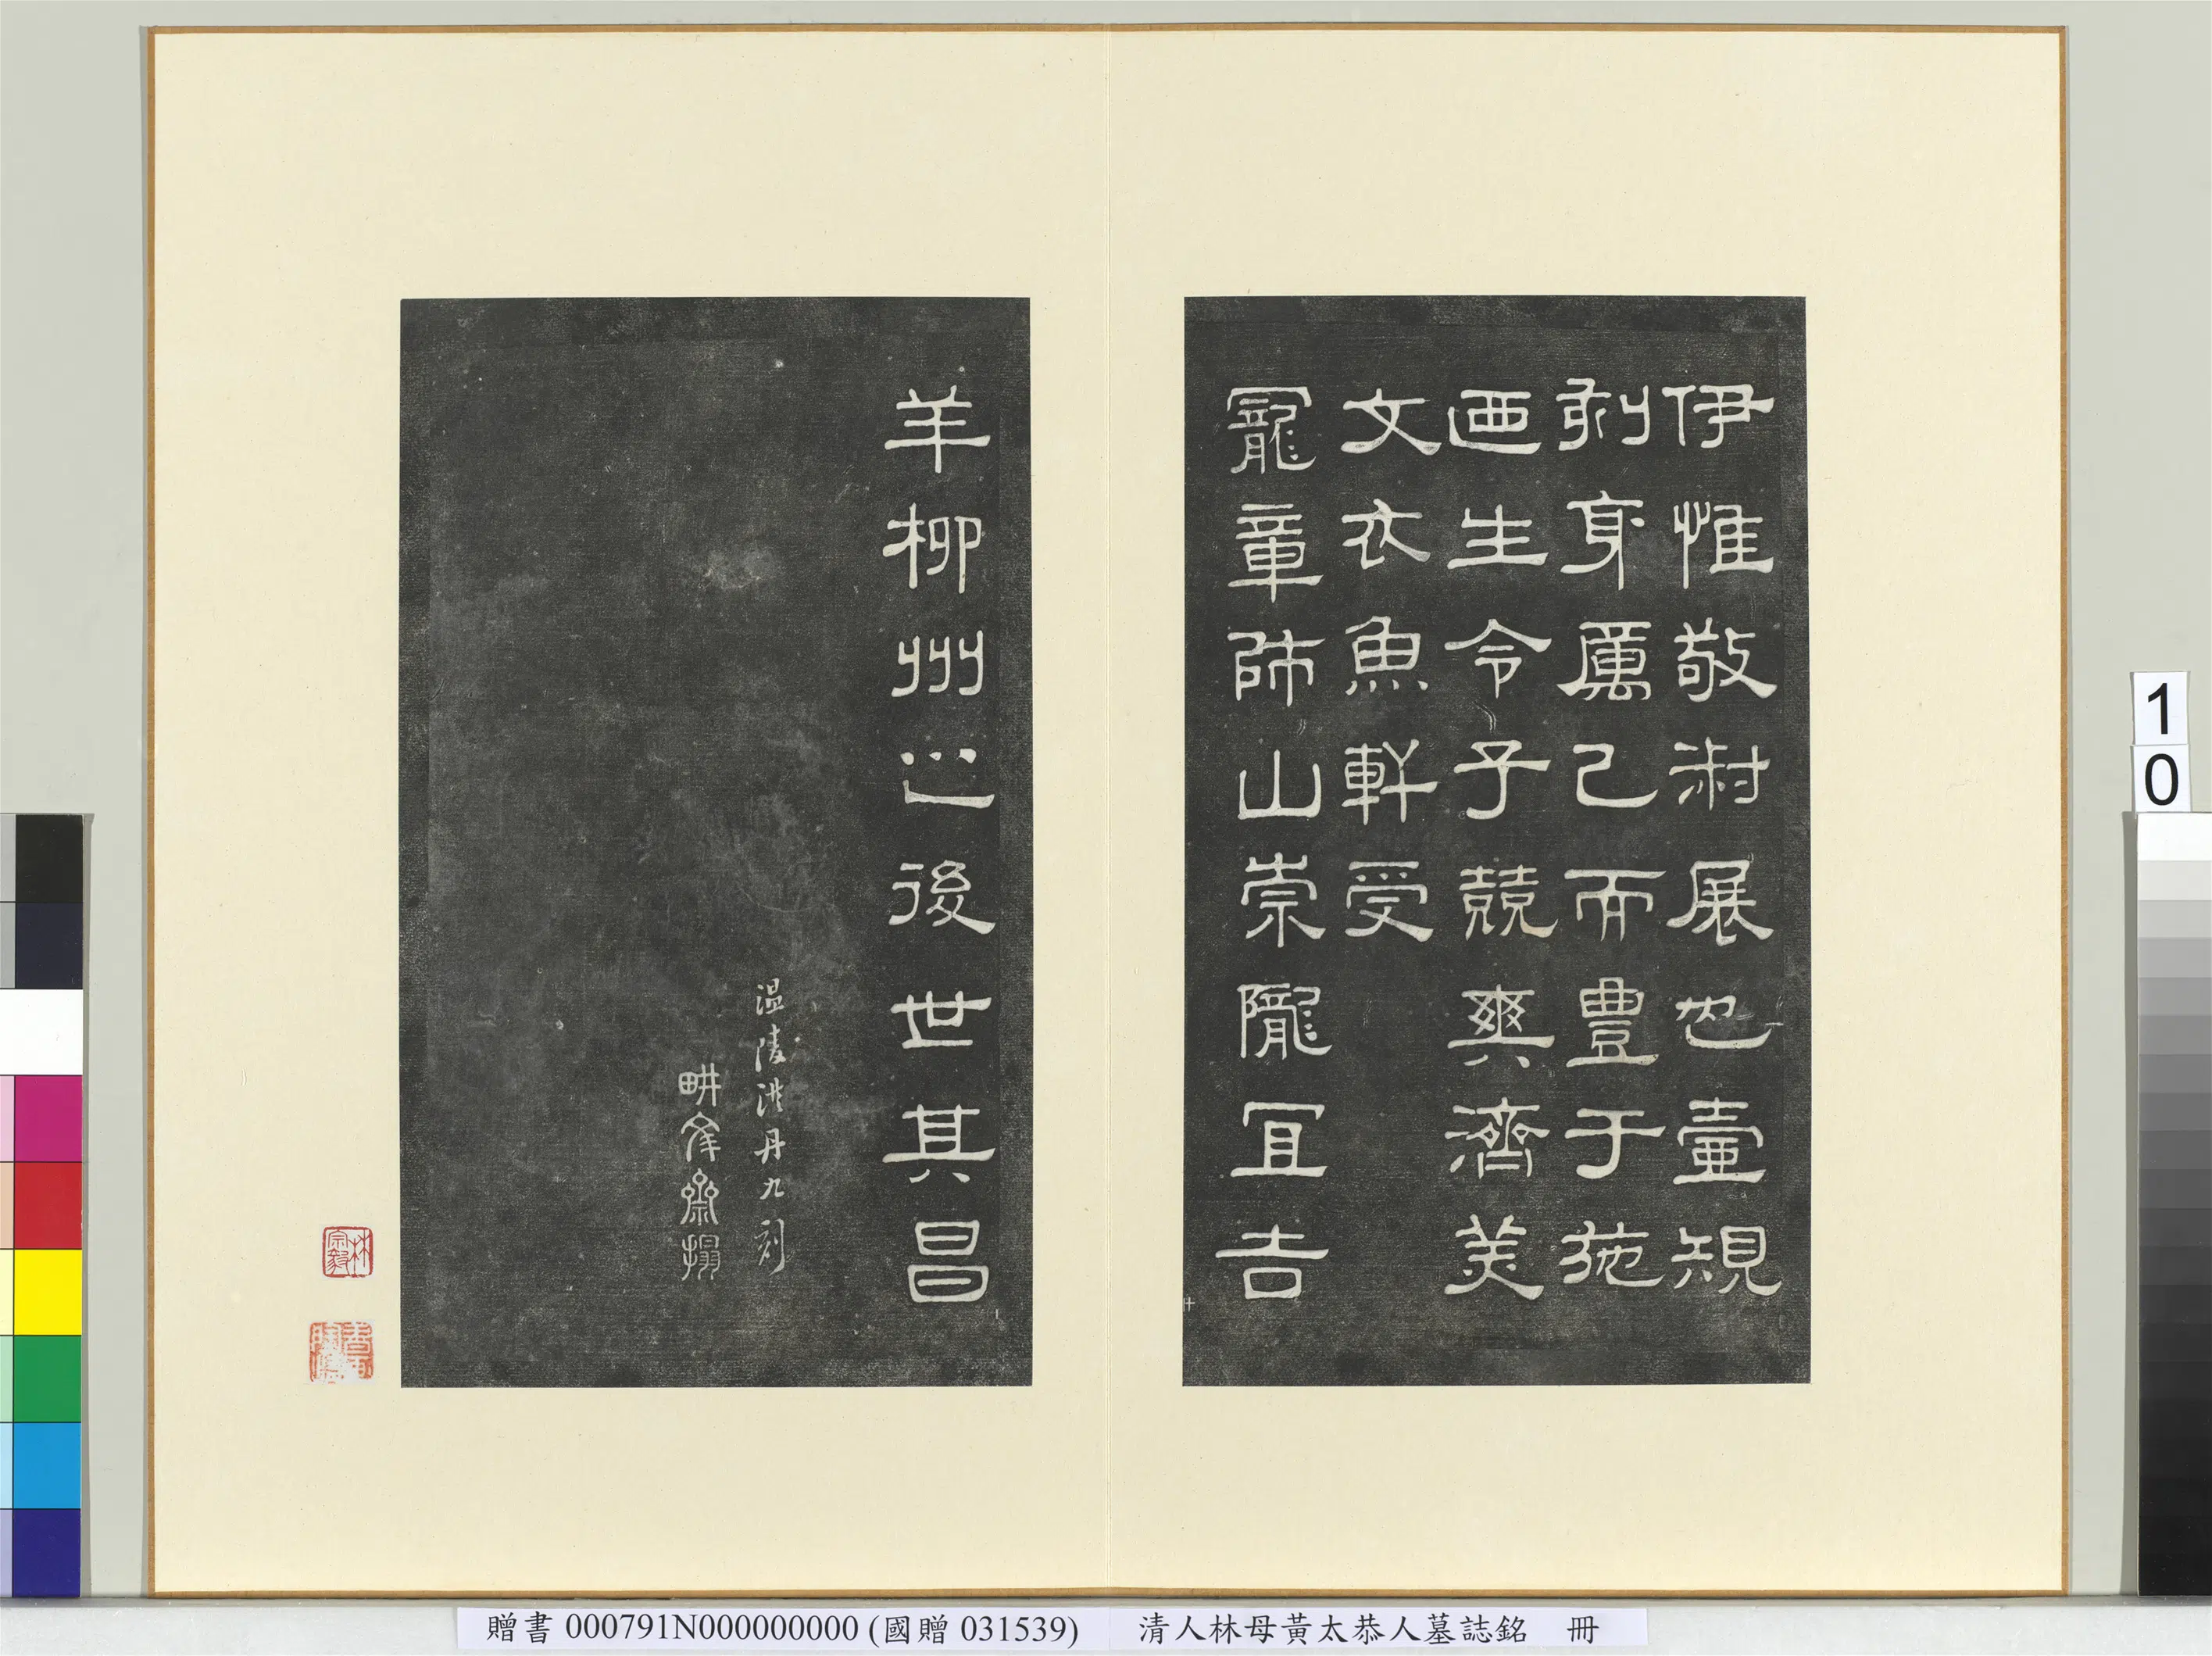 伊惟敬叔展也壼䂓
刻身厲己而豊于施
迺生令子競爽濟美
文衣魚軒受
寵章師山崇隴冝吉
羊柳州之後世其昌
温陵洪丹九刻
畊齋搨
林宗毅
10
贈書 000791N000000000 (國贈 031539) 清人林母黃太恭人墓誌銘 冊